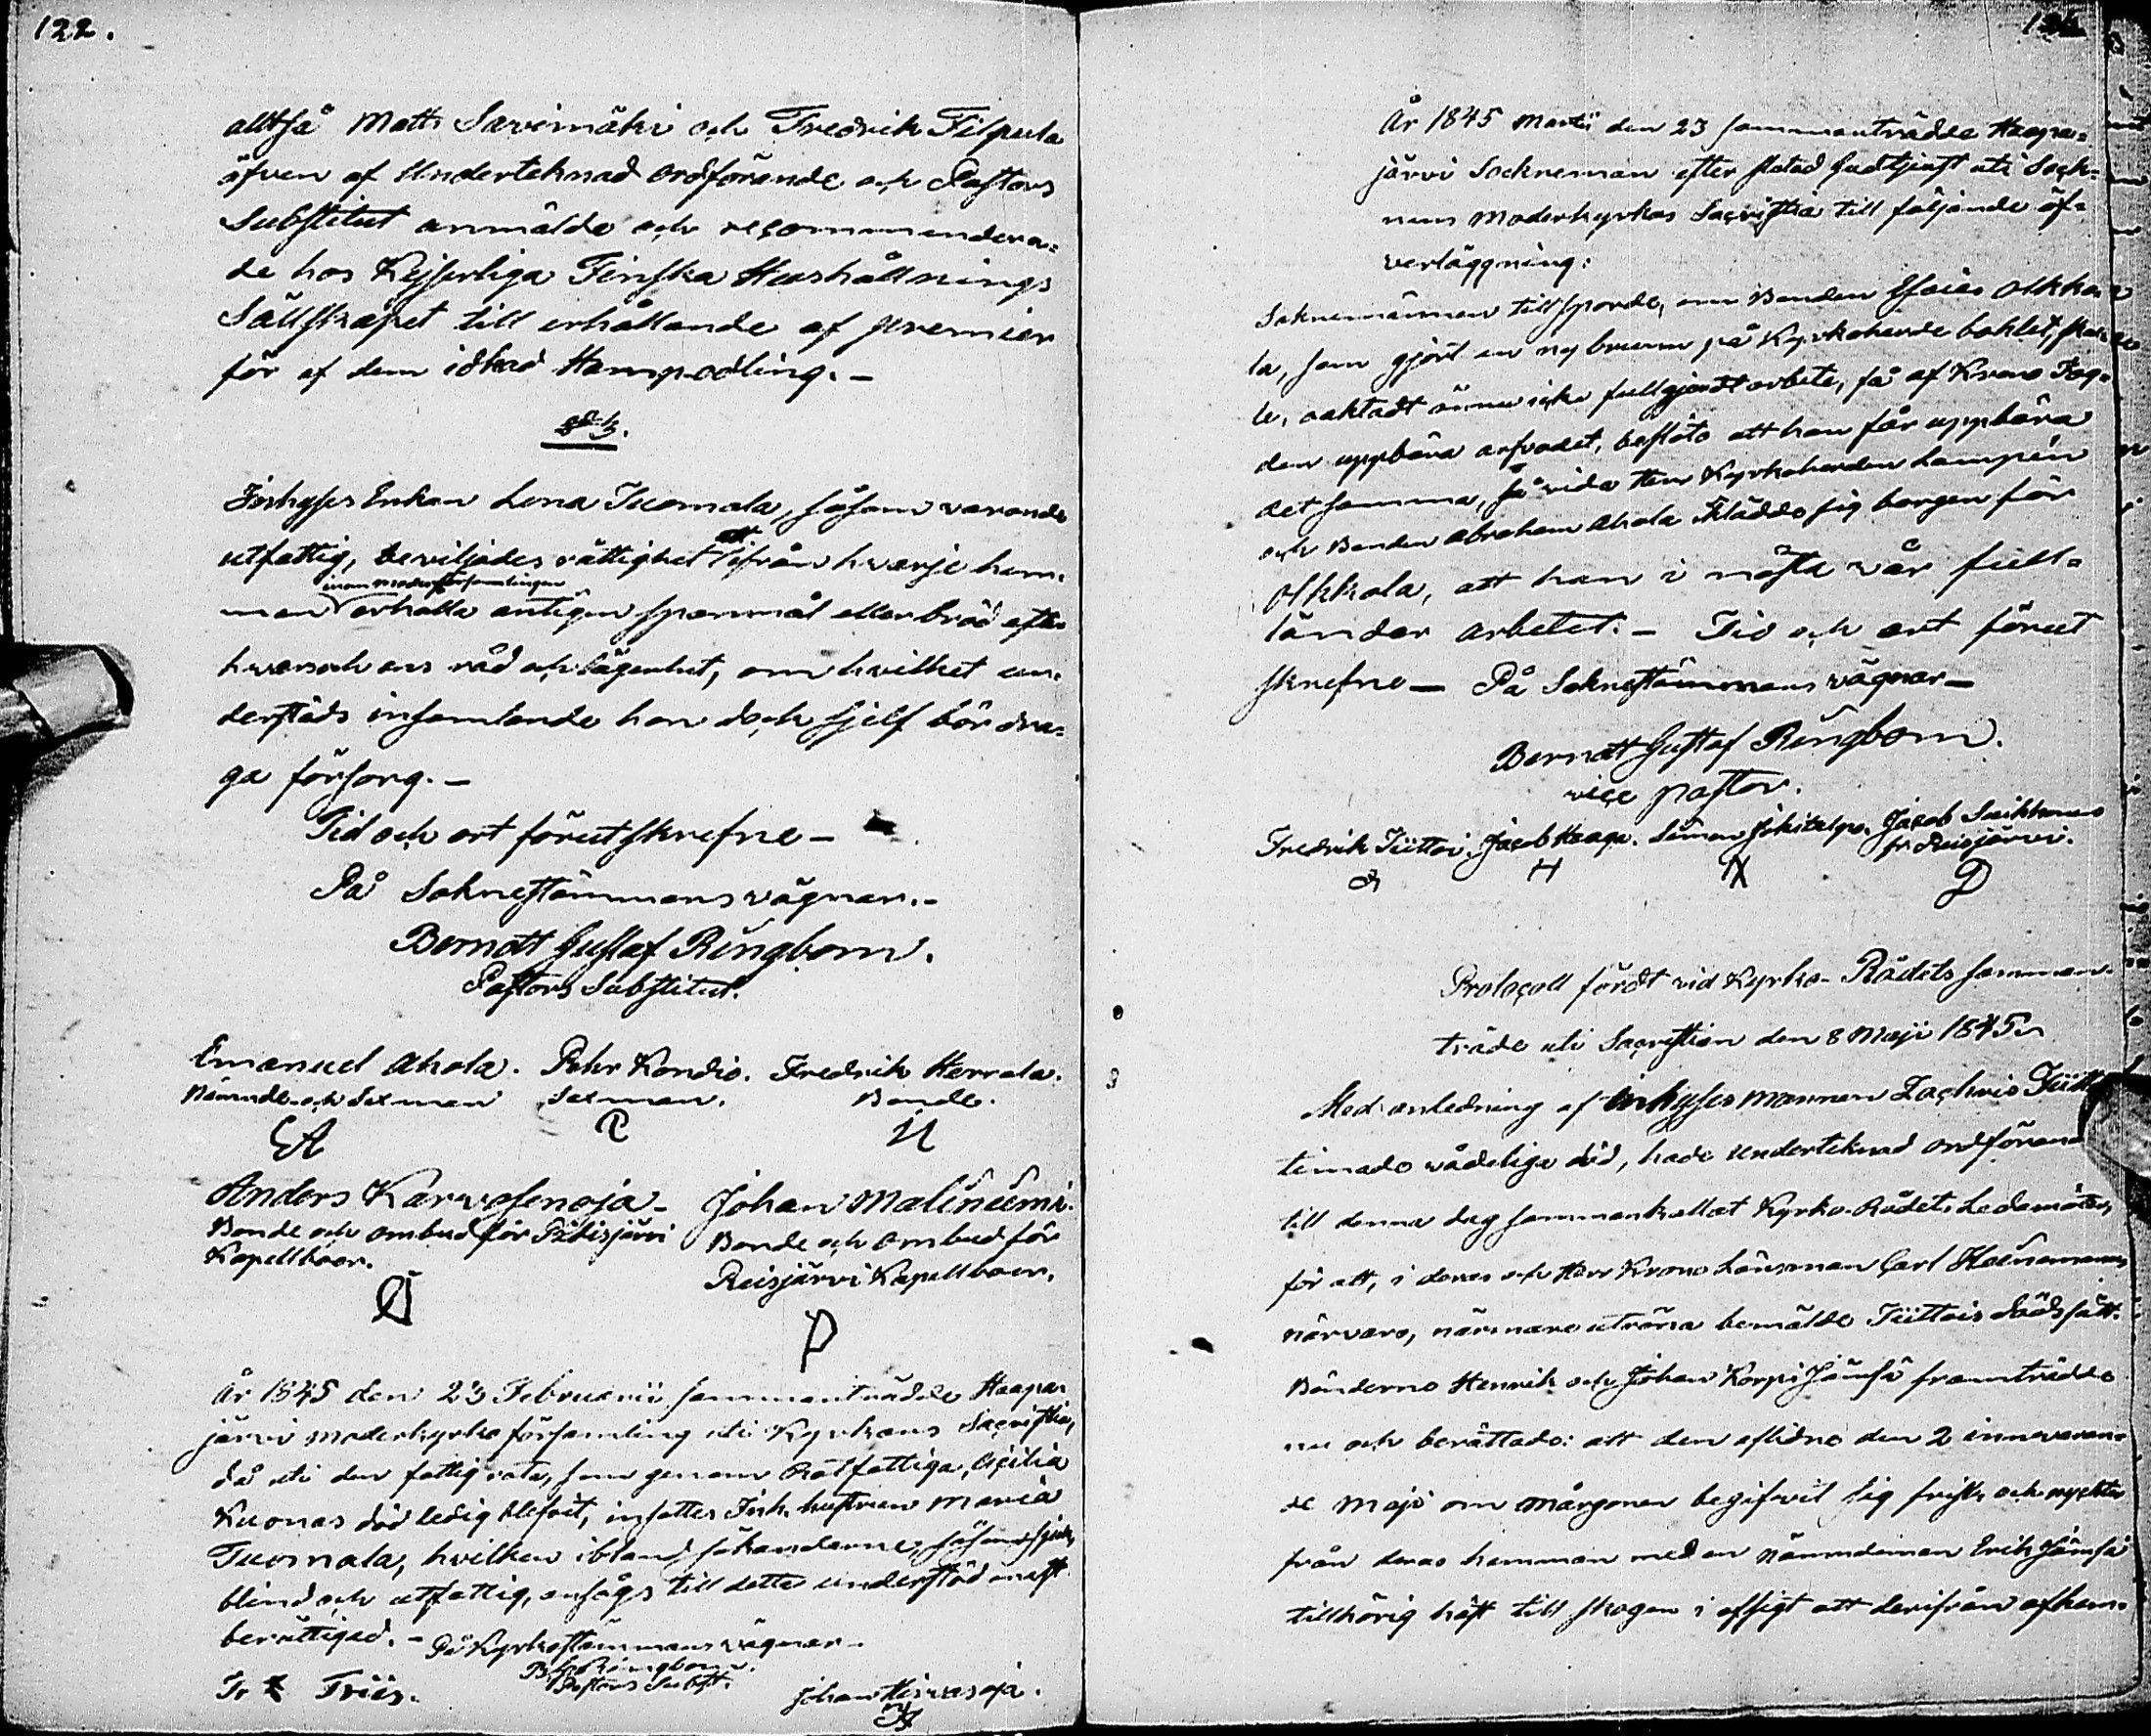 122.
alltså Matts Savimäki och Fredrik Tilpula
äfven af Underteknad Ordförande och Pastors
Substitut anmälde och recommendera-
de hos Kejserliga Finska Hushållnings
Sällskapet till erhållande af premier
för af dem idkad Hampodling. -
§ 3.
Inhyses Enkan Lena Tuomala, såsom varande
utfattig, beviljades rättighet att ifrån hvarje hem-
inom moderförsamlingen
man erhålla antigen spanmål eller bröd efter
hvars och ens råd och lägenhet, om hvilket un-
derstöds insamlande hon dock sjelf bör dra-
ga försorg. -
Tid och ort förutskrefne -
På Soknestämmans vägnar. -
Berndt Gustaf Ringbom.
Pastors Substitut.
Emanuel Ahola. Pehr Kondio. Fredrik Herrala.
Nämnde- och Sexman Sexman. Bonde.
EA P H
Anders Karvosenoja - Johan Maliniemi.
Bonde och ombud för Pidisjärvi Bonde och Ombud för
Kapellboer. Reisjärvi Kapellboer.
År 1845 den 23 Februarii sammanträdde Haapa-
järvi moderkyrko församling uti Kyrkans Sacristia,
då uti den fattig rota, som genom Rotfattiga, Cecilia
Kuonas död ledig blefvit, insattes Inh. hustrun Maria
Tuomala, hvilken ibland sökanderne, såsom sjuk,
blind och utfattig, ansågs till detta understöd mest
berättigad. - På Kyrkostämmans vägnar -
B. G. Ringbom.
Pastors Subst.
Friis. Johan Hirvasoja.
År 1845 Martii den 23 sammanträdde Haapa-
järvi Sockneman efter slutad Gudstjenst uti Sock-
nens Moderkyrkas Sacristia till följande öf-
verläggning:
Soknemännen tillsporde, om Bonden Esaias Olkko-
la, som gjort en ny brunn på Kyrkoherde bohlet, skul-
le, oaktadt ännu icke fullgjordt arbete, få af Krono Fog-
den uppbära arfvodet, beslöto att han får uppbära
det samma, så vida Herr Kyrkoherden Lampén
och Bonden Abraham Ahola iklädde sig borgen för
Olkkola, att han i nästa vår full-
ändar arbetet. - Tid och ort förut
skrefne - På Soknestämmans vägnar -
Berndt Gustaf Ringbom.
vice pastor.
Fredrik Tiitto. Jacob Haapa. Simon Jokitalpo. Jacob
fr. Reisjärvi.
H X D
Protocoll fördt vid Kyrko-Rådets samman-
träde uti Sacristian den 8 Maji 1845.
Med anledning af inhyses mannen Zachris Tiitto
timade vådeliga död, hade Underteknad Ordförande
till denna dag sammankallat Kyrko-Rådets Ledamöter,
för att, i deras och Herr Krono Länsman Carl
närvaro, närmare utröna bemälde Tiittois dödssätt.
Bönderne Henrik och Johan Korpi Jämsä framträdde
nu och berättade: att den aflidne den 2 innevaran-
de Maji om mårgonen begifvit sig frisk och nyckter
från deras hemman med en Nämndeman Erik Jämsä
tillhörig häst till skogen i afsigt att derifrån afhem-